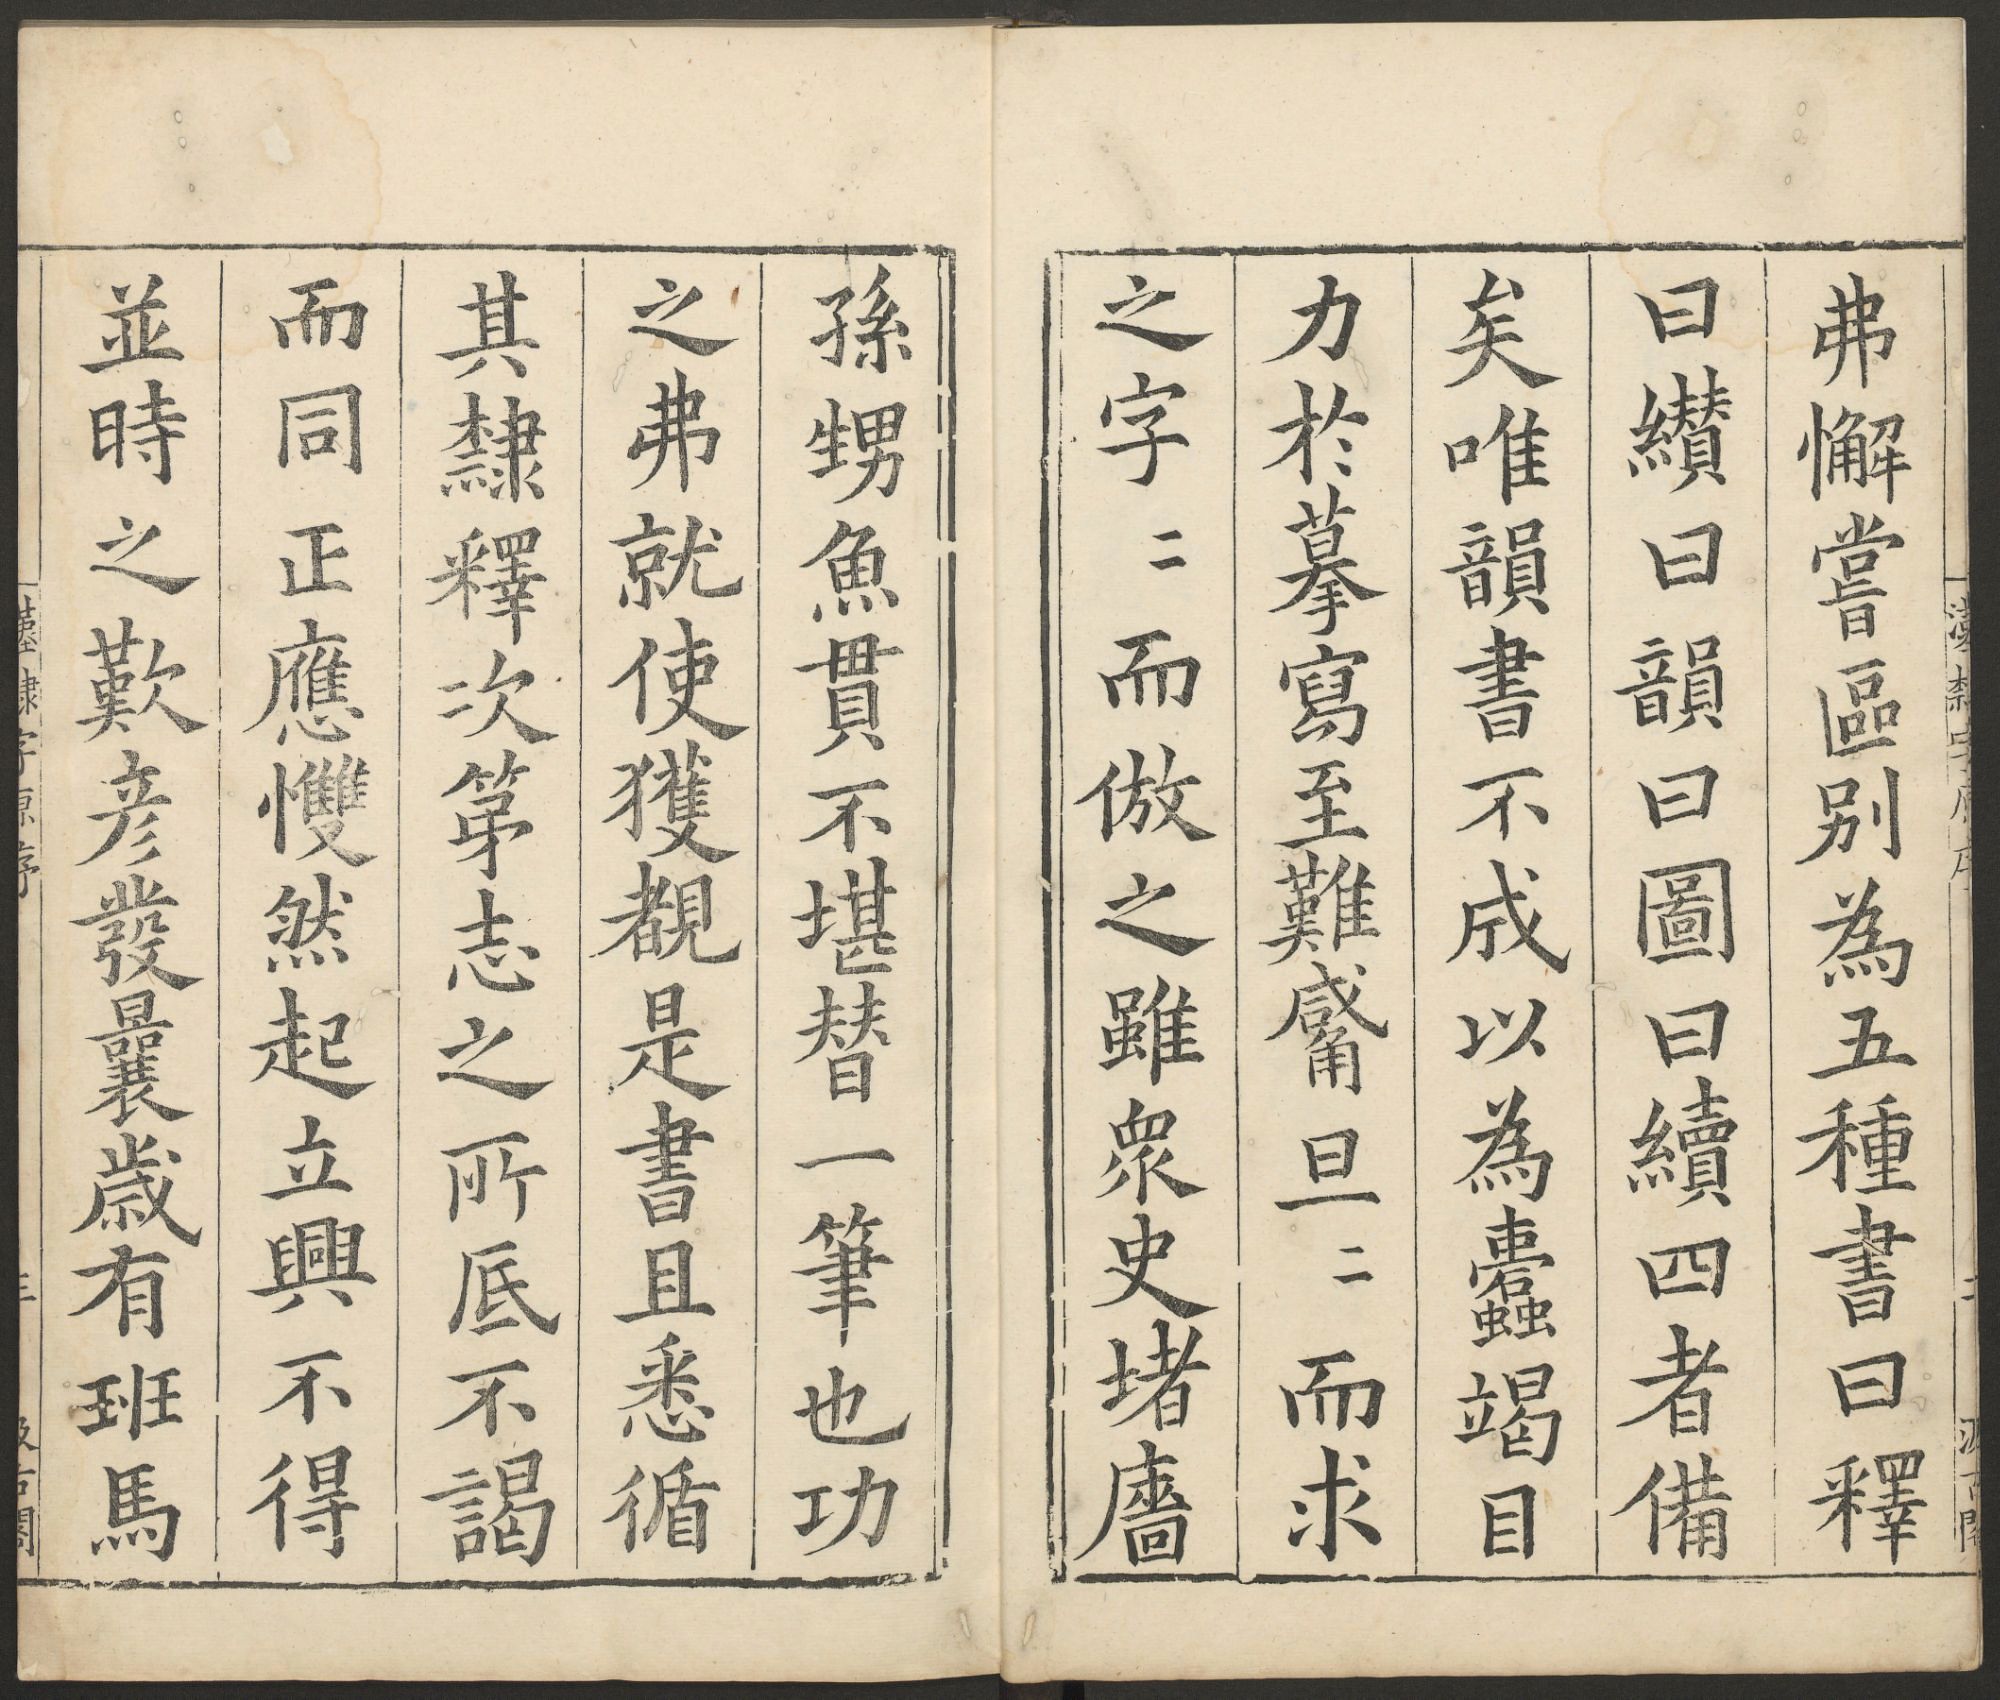 弗懈嘗區別為五種書曰釋
曰纘曰韻曰圖曰續四者備
矣唯韻書不成以為蠹竭目
力於摹寫至難鬳旦二而求
之字二而倣之雖衆史堵廧
孫甥魚貫不堪替一筆也功
之弗就使獲覩是書且悉循
其隸釋次第志之所底不謁
而同正應戄然起立興不得
並時之歎彦發曩歲有班馬
漢隸字原序
三
汲古閣